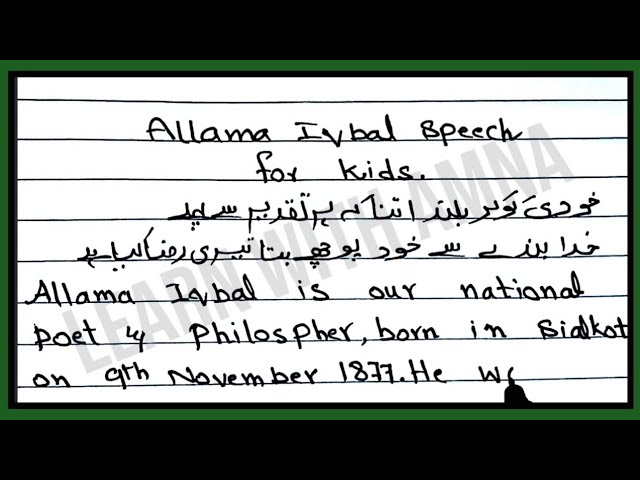 Allama Iqbal Speech
for kids.
خودی کو کر بلند اتنا کہ ہر تقدیر سے پہلے
خدا بندے سے خود پوچھے بتا تیری رضا کیا ہے
Allama Iqbal is our national
poet & Philospher, born in Sialkot
on 9th November 1877. He w
LEARN WITH AMNA